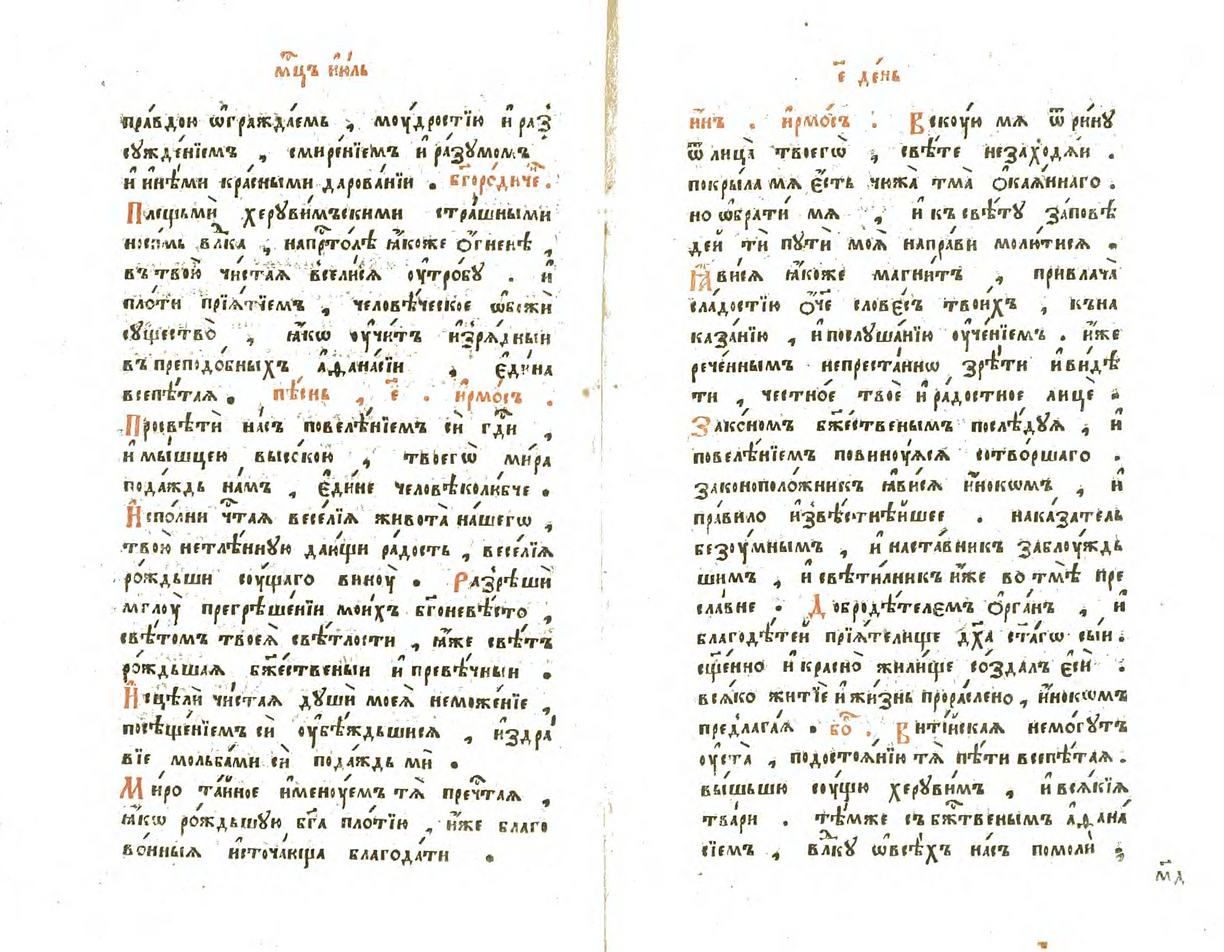 мⷭ҇цъ і҆ю́ль
пра́вдою ѡ҆гражда́емь , моу́дростїю и҆ раз̾
сужде́нїемъ , смире́нїемъ и҆ ра́зумомъ
и҆ и҆нѣ́ми кра́сными дарова́нїи . бг҃оро́диче .
Плещьмѝ херуви́мъскими стра́шными
носимь влⷣка , напрⷭ҇то́лѣ ꙗ҆́коже ѻ҆́гненѣ ,
въ твою̀ чи́стая вселися ѹ҆тро́бу . и҆
пло́ти прїѧ́тїемъ , человѣ́ческое ѡ҆божѝ
существо̀ , ꙗ҆́кѡ ѹ҆чи́тъ и҆зря́дныи
въ преподо́бныхъ а҆ѳана́сїи , є҆ди́на
всепѣ́таѧ . пѣ́снь , є҃ . и҆рмо́съ .
Просвѣти́ на́съ повелѣ́нїемъ сѝ гдⷭ҇и ,
и҆ мы́шцею высо́кою , твоегѡ̀ ми́ра
пода́ждь на́мъ , є҆ди́не человѣколю́бче .
И҆спо́лни чⷭ҇таѧ весе́лїѧ живота̀ на́шегѡ ,
твою̀ нетлѣ́нную даю́щи ра́дость , весе́лїѧ
ро́ждьши соу́щаго виноу̀ . Разрѣшѝ
мглоу̀ прегрѣше́нїи мои́хъ бг҃оневѣ́сто ,
свѣ́томъ твоеѧ̀ свѣ́тлости , ꙗ҆́же свѣ́тъ
ро́ждьшаѧ бж҃е́ственыи и҆ превѣ́чныи .
И҆сцѣлѝ чи́стаѧ душѝ моеѧ̀ неможе́нїе ,
посѣще́нїемъ сѝ ѹ҆бѣ́ждьшисѧ , и҆здра́
вїе мольба́ми сѝ пода́ждь мѝ .
Мѵ́ро та́йное и҆менꙋ́емъ тѧ̀ пречⷭ҇таѧ ,
ꙗ҆́кѡ ро́ждьшую бг҃а пло́тїю , и҆́же благо
во́нныѧ и҆сточа́юща благода́ти .
є҃ де́нь
и҆́нъ . и҆рмо́съ . Вскоу́ю мѧ ѿри́ну
ѿ лица̀ твоегѡ̀ , свѣ́те незаходѧ́и .
покры́ла мѧ є҆́сть чю́жа тма̀ ѻ҆каѧ́ннаго .
но ѡ҆брати́ мѧ , и҆ къ свѣ́ту за́повѣ
дей тѝ путѝ моѧ̀ напра́ви молю́тисѧ .
Ꙗ҆ви́сѧ ꙗ҆́коже магни́тъ , привлача̀
сла́достїю ѻ҆́ч҃е слове́съ твои́хъ , къ на
каза́нїю , и҆ послуша́нїю ѹ҆че́нїемъ . и҆́же
рече́ннымъ непреста́ннѡ зрѣ́ти и҆ ви́дѣ
ти , честно́е твоѐ и҆ ра́достное лицѐ .
Зако́номъ бж҃е́ственымъ послѣ́дуѧ , и҆
повелѣ́нїемъ повиноу́ѧсѧ сотво́ршаго .
законополо́жникъ ꙗ҆ви́сѧ и҆́нокѡмъ , и҆
пра́вило и҆звѣ́стнѣ́йшее . наказа́тель
безоу́мнымъ , и҆ наста́вникъ заблоу́ждь
шимъ , и҆ свѣти́лникъ и҆́же во тмѣ̀ пре
сла́вне . Добродѣ́телемъ ѻ҆рга́нъ , и҆
благодѣ́тей прїѧ́телище дх҃а ст҃а́гѡ сы́и .
сщ҃е́нно и҆ красно̀ жили́ще созда́лъ є҆сѝ .
всѧ́ко житїѐ и҆ жи́знь прорасле́но , и҆́нокѡмъ
предлага́ѧ . бо҃ . Вити́йскаѧ немо́гутъ
ѹ҆ста̀ , подостоѧ́нїю тѧ̀ пѣ́ти всепѣ́таѧ .
вы́шьшю соу́щю херуви́мъ , и҆ всѧ́кїѧ
тва́ри . тѣ́мже съ бжⷭ҇твенымъ а҆ѳана́
сїемъ , влⷣку ѡ҆ всѣ́хъ на́съ помолѝ ;
м҃д